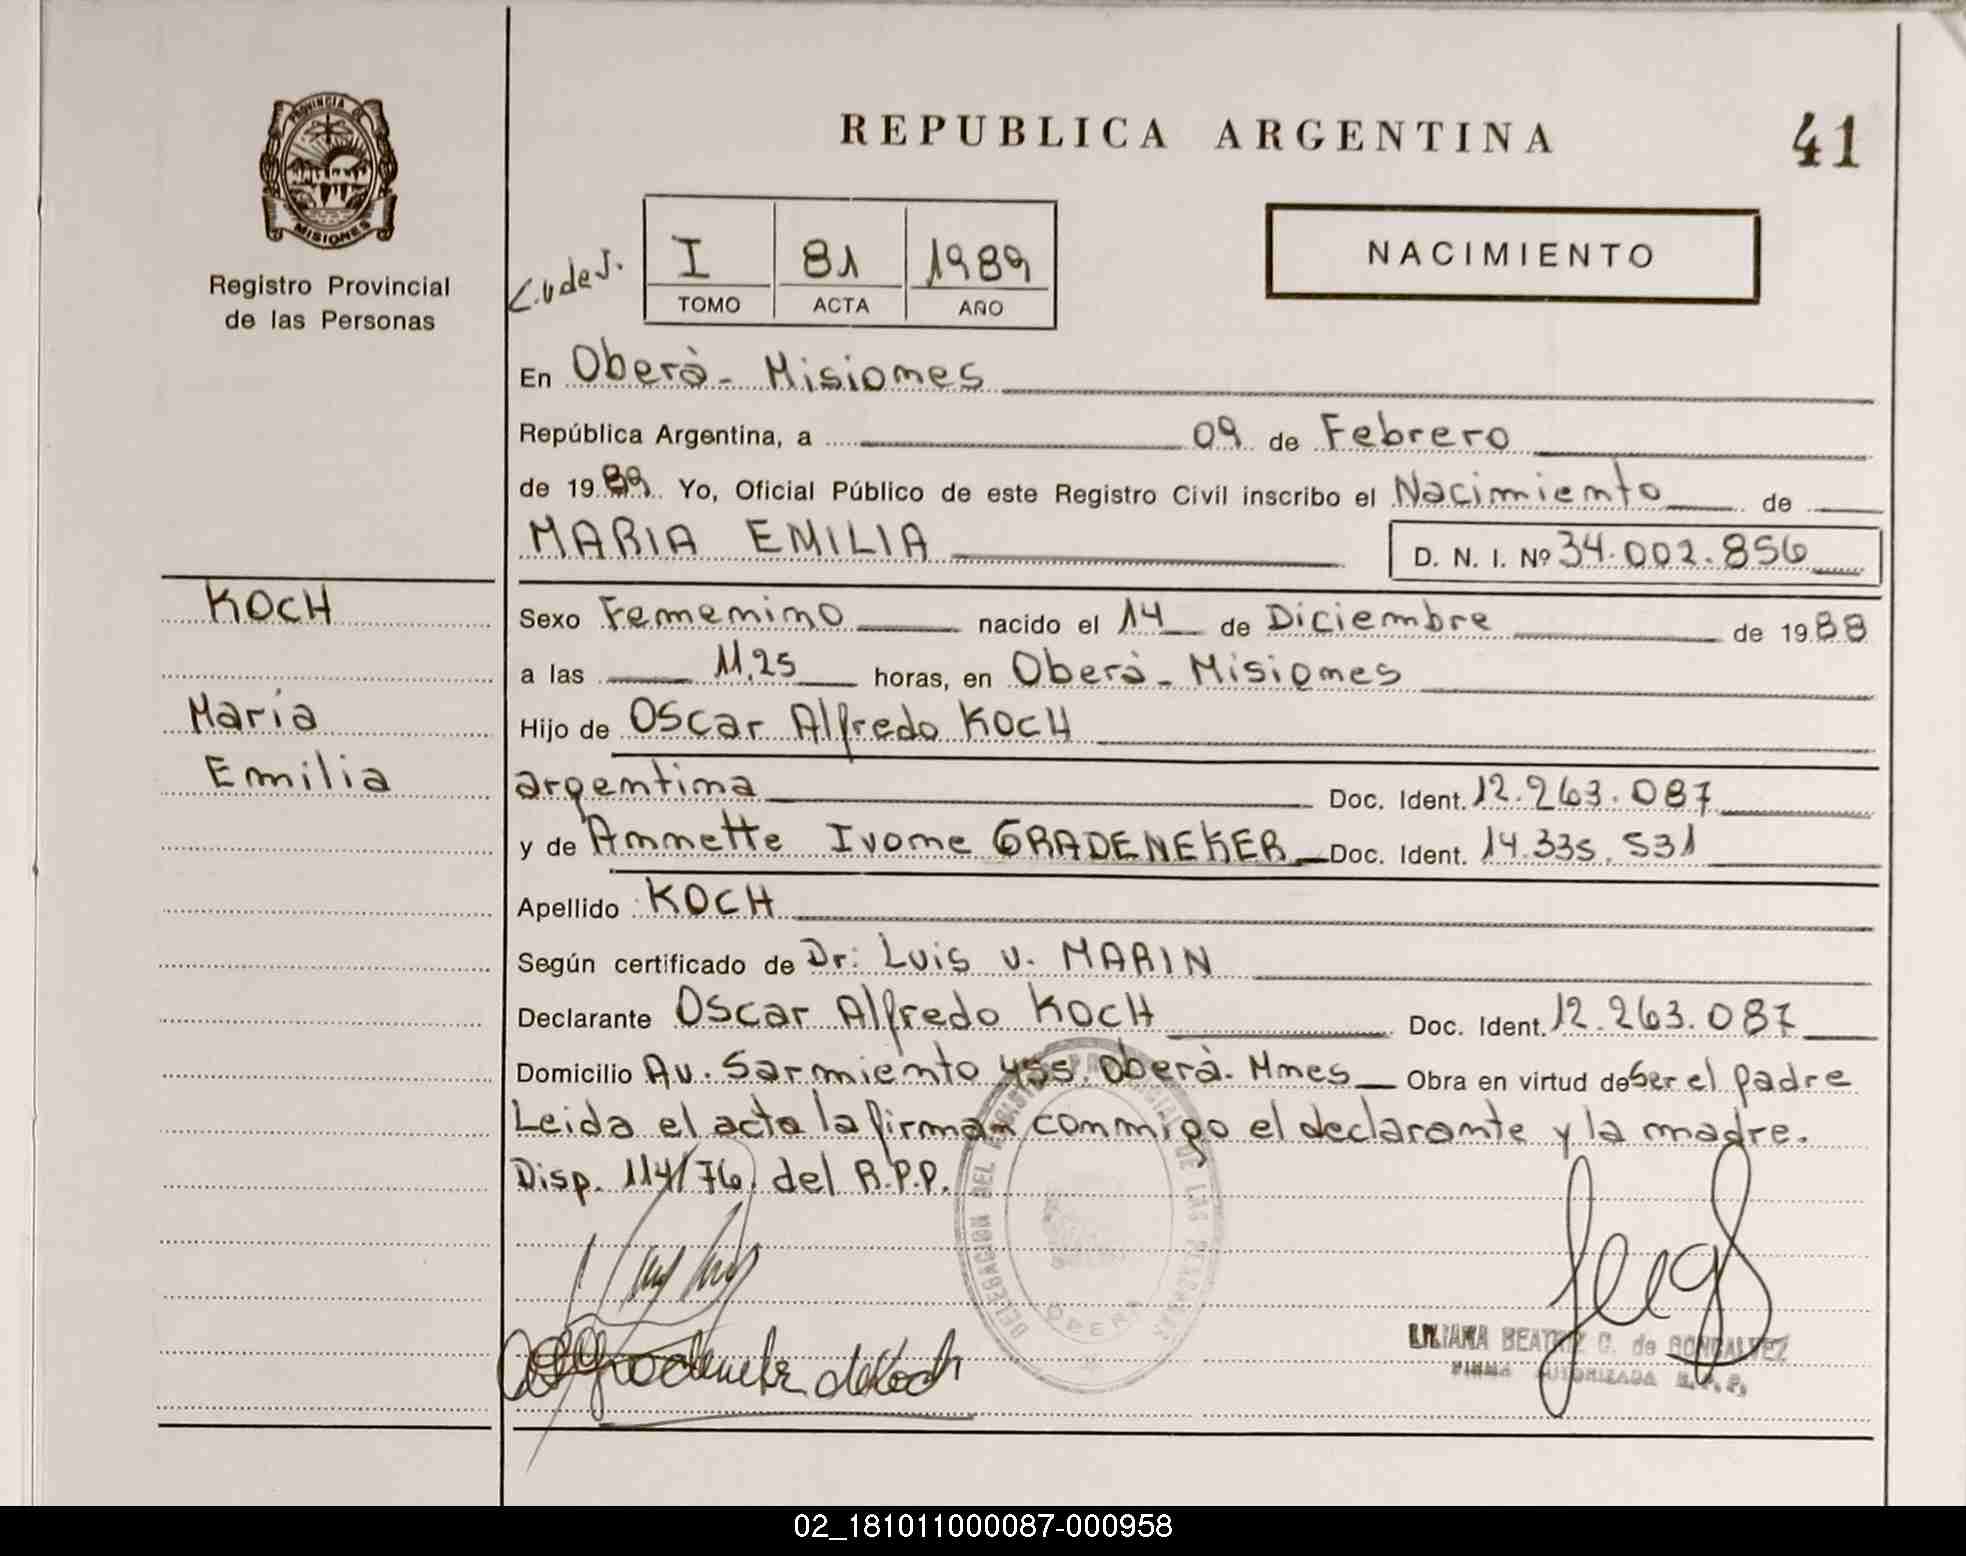 PROVINCIA DE
MISIONES
Registro Provincial
de las Personas
REPUBLICA ARGENTINA
41
L.U de J.
I 81 1989
TOMO ACTA AÑO
NACIMIENTO
En Oberà - Misiones
República Argentina, a 09 de Febrero
de 1989. Yo, Oficial Público de este Registro Civil inscribo el Nacimiento de
MARIA EMILIA D. N. I. Nº 34.002.856
KOCH
María
Emilia
Sexo Femenino nacido el 14 de Diciembre de 1988
a las 11,25 horas, en Oberà - Misiones
Hijo de Oscar Alfredo KOCH
argentina Doc. Ident. 12.263.087
y de Annette Ivone GRADENEKER Doc. Ident. 14.335.531
Apellido KOCH
Según certificado de Dr: Luis V. MARIN
Declarante Oscar Alfredo KOCH Doc. Ident. 12.263.087
Domicilio Av. Sarmiento 455. Oberà. Mnes Obra en virtud de Ser el padre
Leida el acta la firman conmigo el declarante y la madre.
Disp. 114/76 del R.P.P.
DELEGACION DEL REGISTRO PROVINCIAL DE LAS PERSONAS
OBERA
de Koch
LILIANA BEATRIZ G. de GONCALVEZ
FIRMA AUTORIZADA R.P.P.
02_181011000087-000958